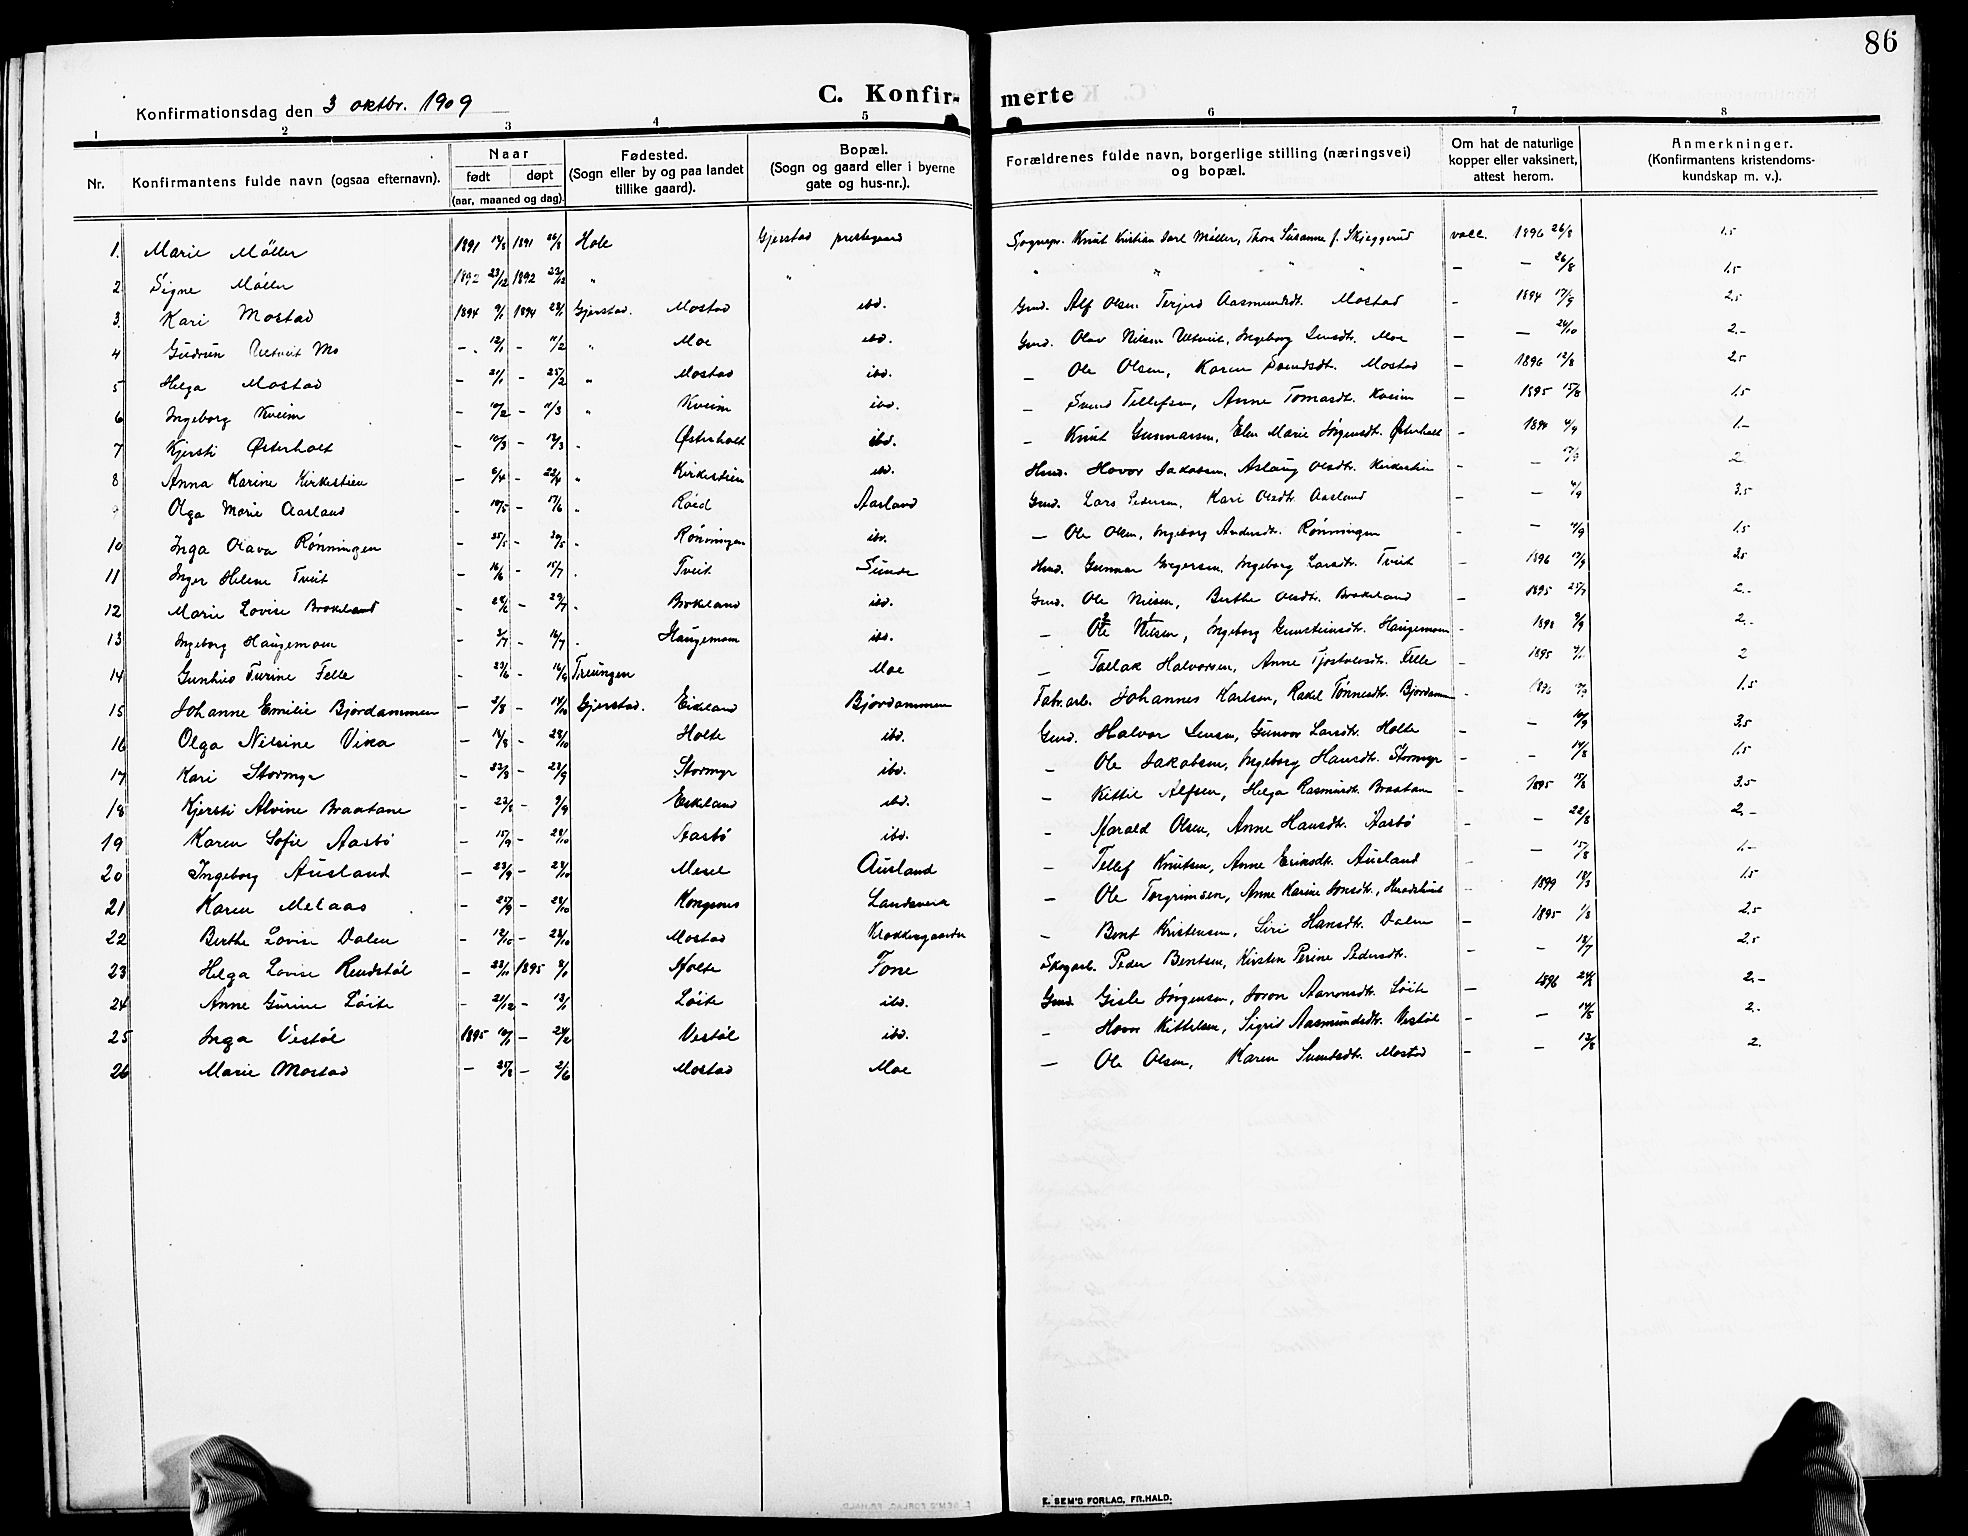 86
C. Konfir- merte
Konfirmationsdag den 3 oktbr. 1909
1 2 3 4 5 6 7 8
Nr. Konfirmantens fulde navn (ogsaa efternavn). Naar født døpt (aar, maaned og dag). Fødested. (Sogn eller by og paa landet tillike gaard). Bopæl. (Sogn og gaard eller i byerne gate og hus-nr.). Forældrenes fulde navn, borgerlige stilling (næringsvei) og bopæl. Om hat de naturlige kopper eller vaksinert, attest herom. Anmerkninger. (Konfirmantens kristendoms-kundskap m. v.).
1. Marie Møller 1891 1891 26/8 Hole Gjerstad prestegaard Sognepr. Knut Kristian Møller, Thora Susanne f. Skjeggerud vacc. 1896 26/8 1.5
2 Signe Møller 1892 23/12 1892 23/12 " " " " " " — — 26/8 1.5
3. Kari Mostad 1894 9/1 1894 28/1 Gjerstad. Mostad ibd. Gmd. Alf Olsen Terjerd Aasmundsdt. Mostad — 1894 17/9 2.5
4 Gudrun Ultveit Mo — 12/1 — 11/2 " Moe ibd. Gmd. Olav Nilsen Ultveit, Ingeborg Jensdt. Moe — — 26/10 2.-
5 Helga Mostad — 21/1 — 25/2 " Mostad ibd. — Ole Olsen, Karen Mostad — 1896 12/8 2.5
6 Ingeborg Kveim — 10/2 — 11/3 " Kveim ibd. — Svend Tellefsen, Anne Tomasdt. Kveim — 1895 15/8 1.5
7 Kjersti Østerholt — 10/3 — 12/3 " Østerholt ibd. — Knut Gunnarsen, Elen Marie Jörgensdt. Østerholt — 1894 4/9 1.-
8 Anna Karine Kirkestien — 6/4 — 22/4 " Kirkestien ibd. Hmd. Hovor Jakobsen, Aslaug Olsdt. Kirkestien — — 17/9 2
9 Olga Marie Aasland — 10/5 — 17/6 " Röed Aasland Gmd. Lars Pedersen, Kari Olsdt. Aasland — — 4/9 3.5
10 Inga Olava Rönningen — 25/5 — 20/5 " Rönningen ibd. — Ole Olsen, Ingeborg Andersdt. Rönningen — — 4/9 1.5
11 Inger Helene Tveit — 16/6 — 15/7 " Tveit Sunde Hmd. Gunnar Gregersen, Ingeborg Larsdt. Tveit — 1896 17/9 2.5
12 Marie Lovise Brokeland — 28/6 — 29/7 " Brokeland ibd. Gmd. Ole Nilsen, Berthe Olsdt. Brokeland — 1895 25/7 2.-
13 Ingeborg Haugemoen — 3/7 — 16/7 " Haugemoen ibd. — Ole Nilsen, Ingeborg Gunsteinsdt. Haugemoen — 1898 9/9 2.-
14 Gunhild Turine Felle — 23/6 — 16/9 Treungen Moe — Tallak Halvorsen, Anne Tjostolvsdt. Felle — 1895 2
15 Johanne Emilie Bjordammen — 2/8 — 14/10 Gjerstad. Eikeland Bjordammen Fabr.arb. Johannes Karlsen, Rakel Tönnesdt. Bjordammen — 1896 1.5
16 Olga Nilsine Vika — 14/8 — 28/10 Holte ibd. Gmd. Halvor Jensen, Gunvor Larsdt. Holte — — 10/9 3.5
17 Kari Stormyr — 22/8 — 23/9 Stormyr ibd. — Ole Jakobsen, Ingeborg Hansdt. Stormyr — — 14/8 1.5
18 Kjersti Alvine Braatane — 22/8 — 9/9 Eskeland ibd. — Kittil Alfsen, Helga Rasmusdt. Braatan — 1895 15/8 3.5
19 Karen Sofie Aasbö — 15/9 — 28/10 Aasbö ibd. — Harald Olsen, Anne Hansdt. Aasbö — — 22/8 2.-
20 Ingeborg Ausland — 23/9 — 28/10 Mesel Ausland — Tellef Knutsen, Anne Eriksdt. Ausland — — 15/8 1.-
21 Karen Melaas — 25/9 — 28/10 Kongsnes Landsvera — Ole Torgrimsen, Anne Karine Jonsdt., — 1899 18/3 1.5
22 Berthe Lovise Dalen — 12/10 — 28/10 Mostad Klokkergaarden — Bent Kristensen, Siri Hansdt. Dalen — 1895 1/8 2.5
23 Helga Lovise Rendstöl — 23/11 1895 Holte Fone Skogarb. Peder Bentsen, Kirsten Perine Pedersdt. — — 18/7 2.5
24 Anne Gurine Löite — 21/12 — 13/1 Löite ibd. Gmd. Gisle Jörgensen, Joron Aanonsdt. Löite — 1896 2.-
25 Inga Vestöl 1895 10/1 — 24/2 Vestöl ibd. — Hovor Kittelsen, Sigrid Aasmundsdt. Vestöl — — 14/5 2.-
26 Marie Mostad — — 2/6 Mostad Moe — Ole Olsen, Karen Mostad — — 13/8 2.
E. SEM'S FORLAG, FR.HALD.